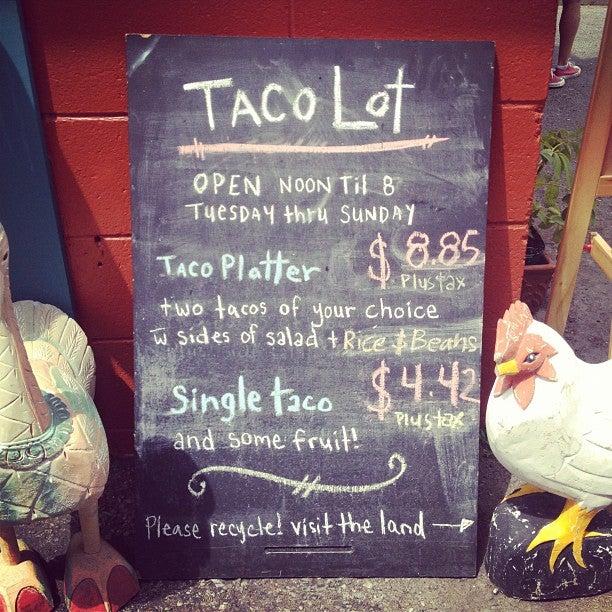 TACO Lot
OPEN NOON Til 8
TUESDAY thru SUNDAY
TACO Platter $8.85
Plus tax
two tacos of your choice
w sides of salad + Rice & Beans
Single taco $4.42
Plus tax
and some fruit!
Please recycle! visit the land →